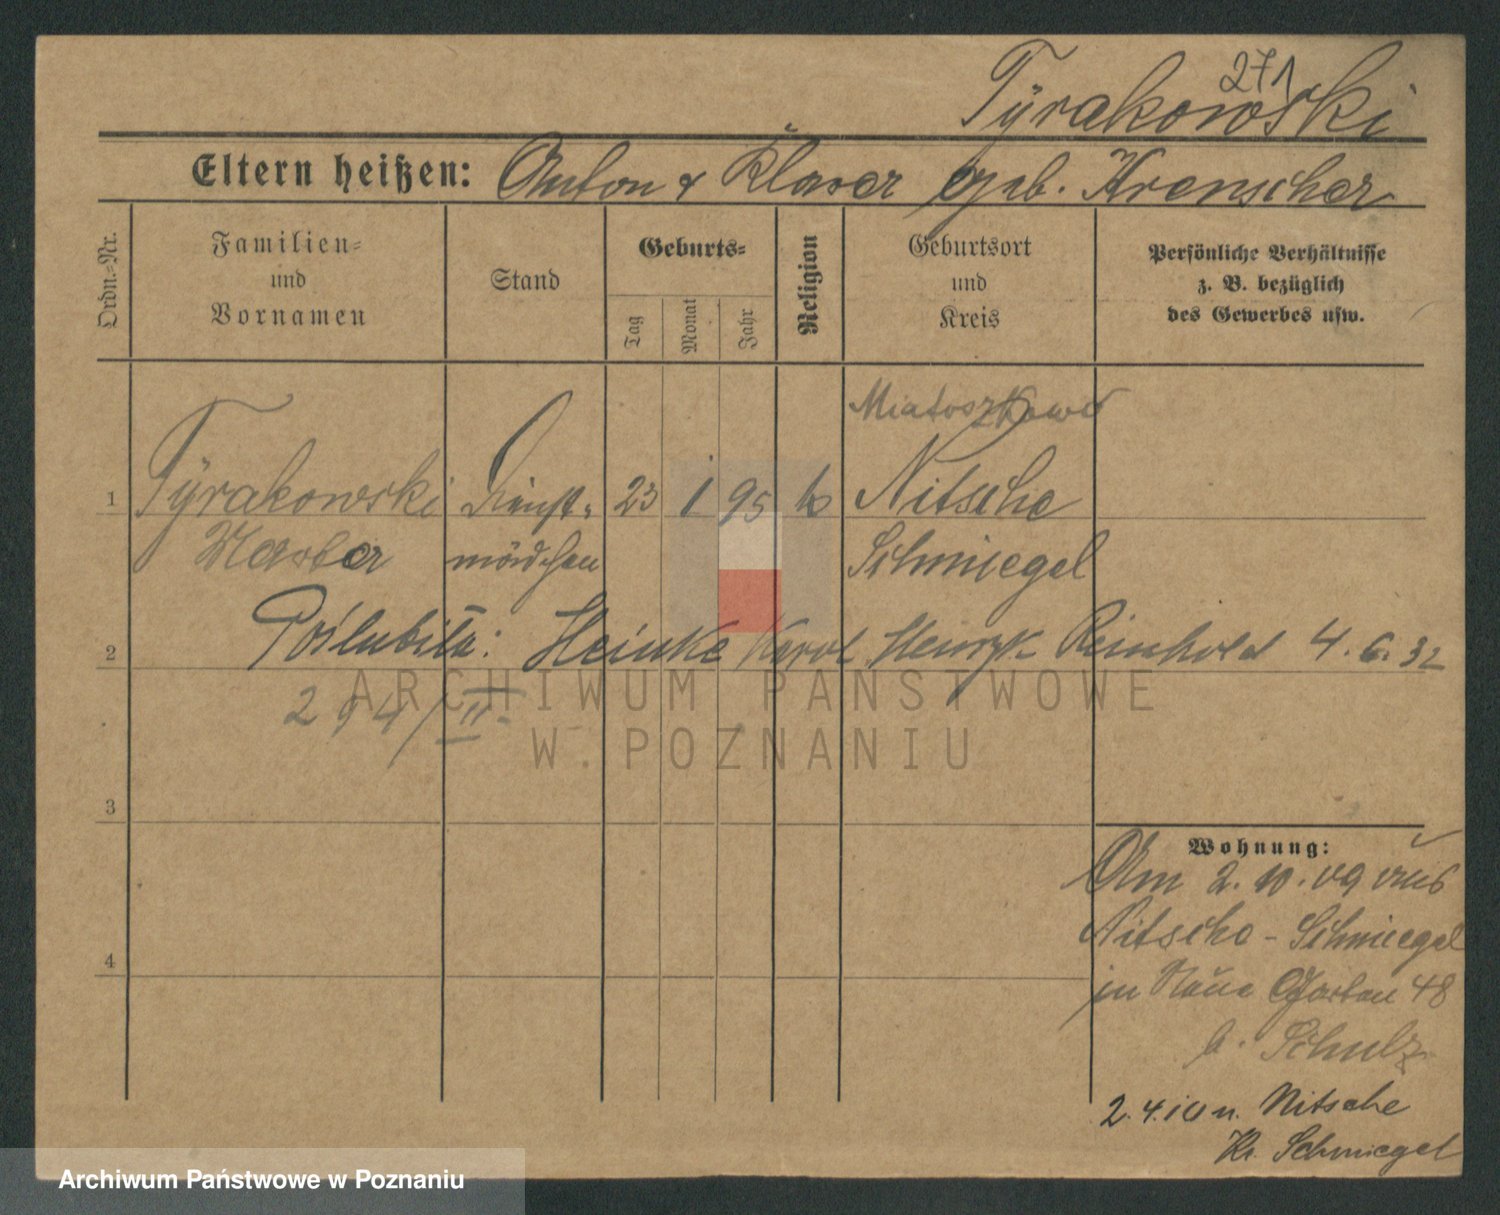 271
Tyrakowski
Eltern heißen: Anton & Klara geb. Krenscher
Ordn.=Nr.
Familien=
und
Vornamen
Stand
Geburts=
Tag
Monat
Jahr
Religion
Geburtsort
und
Kreis
Persönliche Verhältnisse
z. B. bezüglich
des Gewerbes usw.
1
Tyrakowski
Dienst-
mädchen
23 1 95 k
Nitsche
Schmiegel
2
Poślubiła: Heinke Karol Henryk Reinhold 4.6.32
294/II
ARCHIWUM PAŃSTWOWE
W POZNANIU
3
4
Wohnung:
Am 2.10.09 aus
Nitsche - Schmiegel
in Neue Garten 48
b. Schulz
2.4.10 n. Nitsche
Kr. Schmiegel
Archiwum Państwowe w Poznaniu